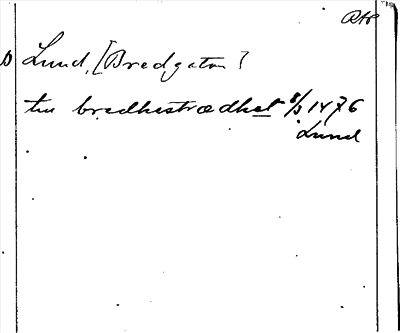 RAP
D Lund, [Bredgatan]
tu bredhestrædhet 8/3 1476
Lund